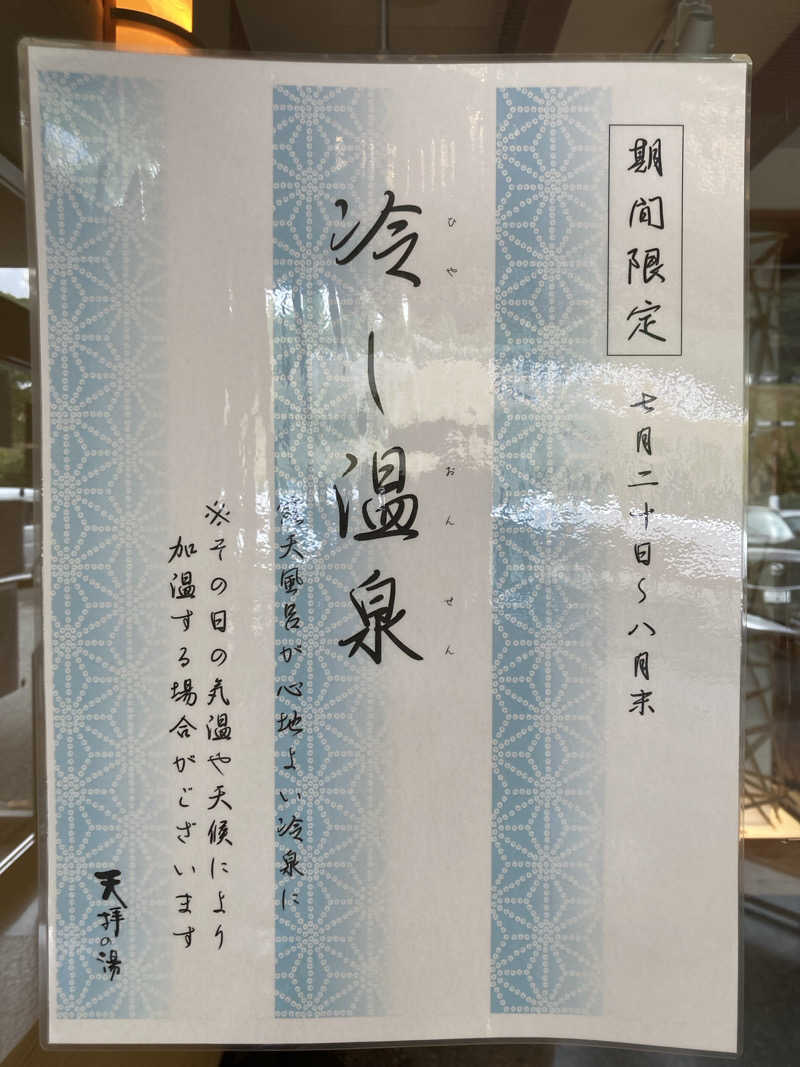 期間限定
七月二十日～八月末
冷し温泉
ひや
おん
せん
露天風呂が心地よい冷泉に
※その日の気温や天候により
加温する場合がございます
天拝の湯